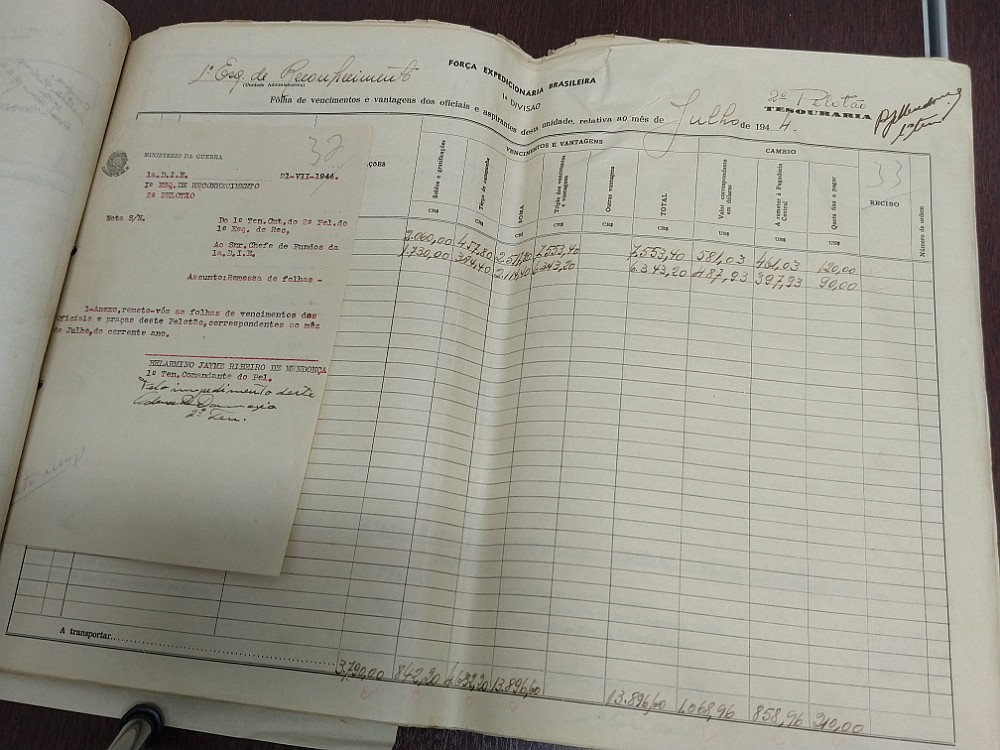 FORÇA EXPEDICIONÁRIA BRASILEIRA
1ª DIVISÃO
1º Esq. de Reconhecimento
(Unidade Administrativa)
2º Pelotão
TESOURARIA
1º Ten
Fôlha de vencimentos e vantagens dos oficiais e aspirantes desta unidade, relativa ao mês de Julho de 1944.
VENCIMENTOS E VANTAGENS
CAMBIO
Soldos e gratificações
Terço de campanha
SOMA
Triplo dos vencimentos e vantagens
Outras vantagens
TOTAL
Valor correspondente em dólares
A remeter à Pagadoria Central
Quota fixa a pagar
RECIBO
Número de ordem
CR$ CR$ CR$ CR$ CR$ CR$ US$ US$ US$
33
2.060,00 457,80 2.517,80 7.553,40 7.553,40 581,03 461,03 120,00
1.730,00 384,40 2.114,40 6.343,20 6.343,20 487,93 397,93 90,00
A transportar
3.790,00 842,20 4.632,20 13.896,60 13.896,60 1.068,96 858,96 210,00
32
MINISTERIO DA GUERRA
1a.D.I.E.
21-VII-1944.
1º ESQ.DE RECONHECIMENTO
2º PELOTÃO
Nota S/N.
Do 1º Ten.Cmt.do 2º Pel.do
1º Esq. de Rec,
Ao Snr.Chefe de Fundos da
1a.D.I.E.
Assunto:Remessa de folhas -
1-Anexo,remeto-vós as folhas de vencimentos dos
oficiais e praças deste Pelotão,correspondentes ao mês
de Julho,do corrente ano.
BELARMINO JAYME RIBEIRO DE MENDONÇA
1º Ten.Comandante do Pel.
Pelo impedimento deste
2º Ten.